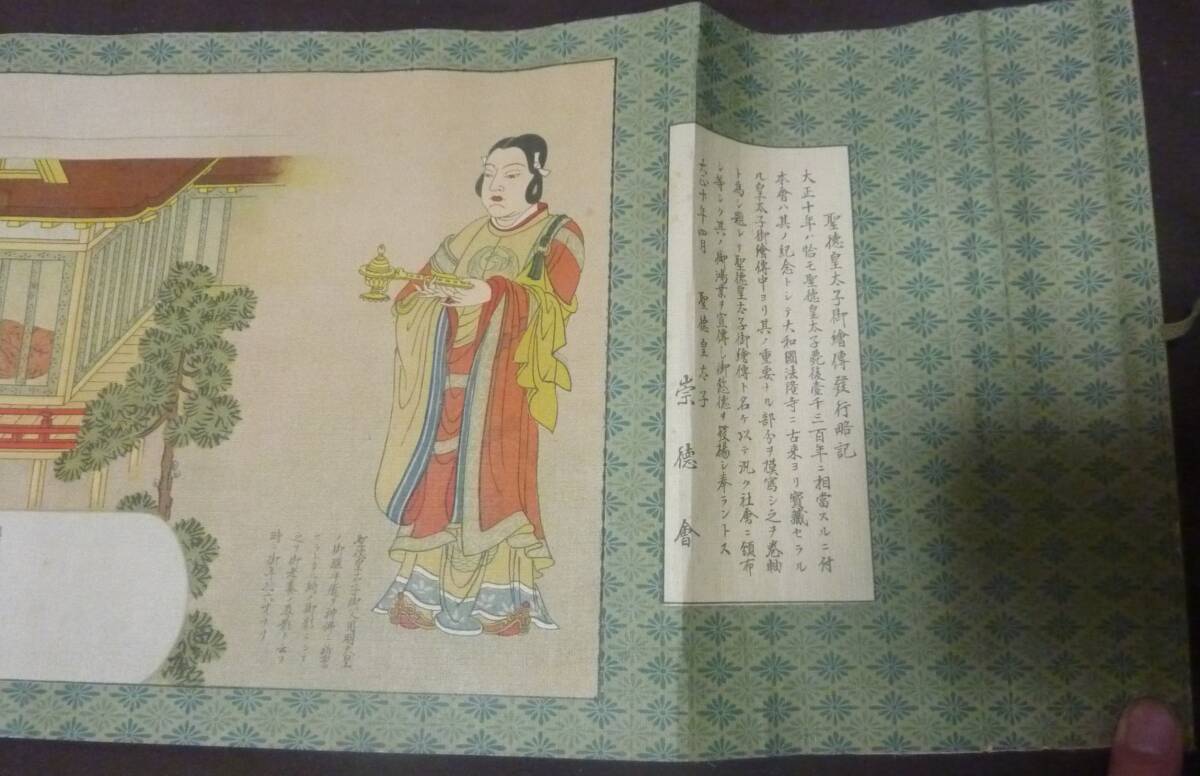 聖徳皇太子御繪傳發行略記
大正十年ハ恰モ聖徳皇太子薨後壹千三百年ニ相當スルニ付
本會ハ其ノ紀念トシテ大和國法隆寺ニ古来ヨリ寶藏セラル
ル皇太子御繪傳中ヨリ其ノ重要ナル部分ヲ模寫シ之ヲ卷軸
ト為シ題シテ聖徳皇太子御繪傳ト名ケ以テ汎ク社會ニ領布
シ等シク其ノ御鴻業ヲ宣傳シ御懿徳ヲ發揚シ奉ラントス
大正十年四月
聖徳皇太子
崇徳會
聖徳皇太子御父用明天皇
ノ御
之ヲ御孝養ノ
時ニ御